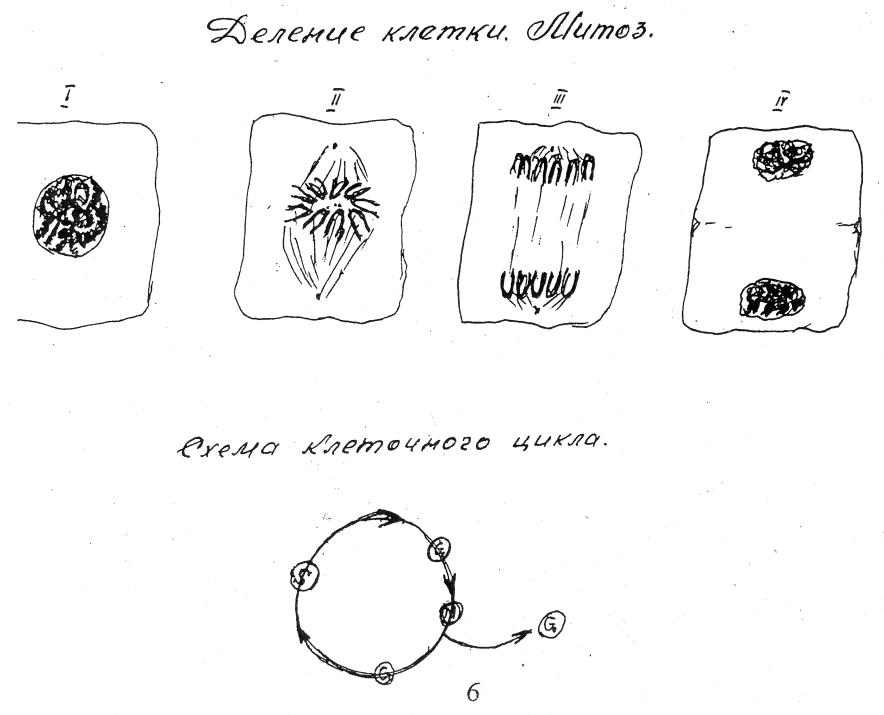 Деление клетки. Митоз.
I II III IV
Схема клеточного цикла.
G₂
S
M
G₀
G
6